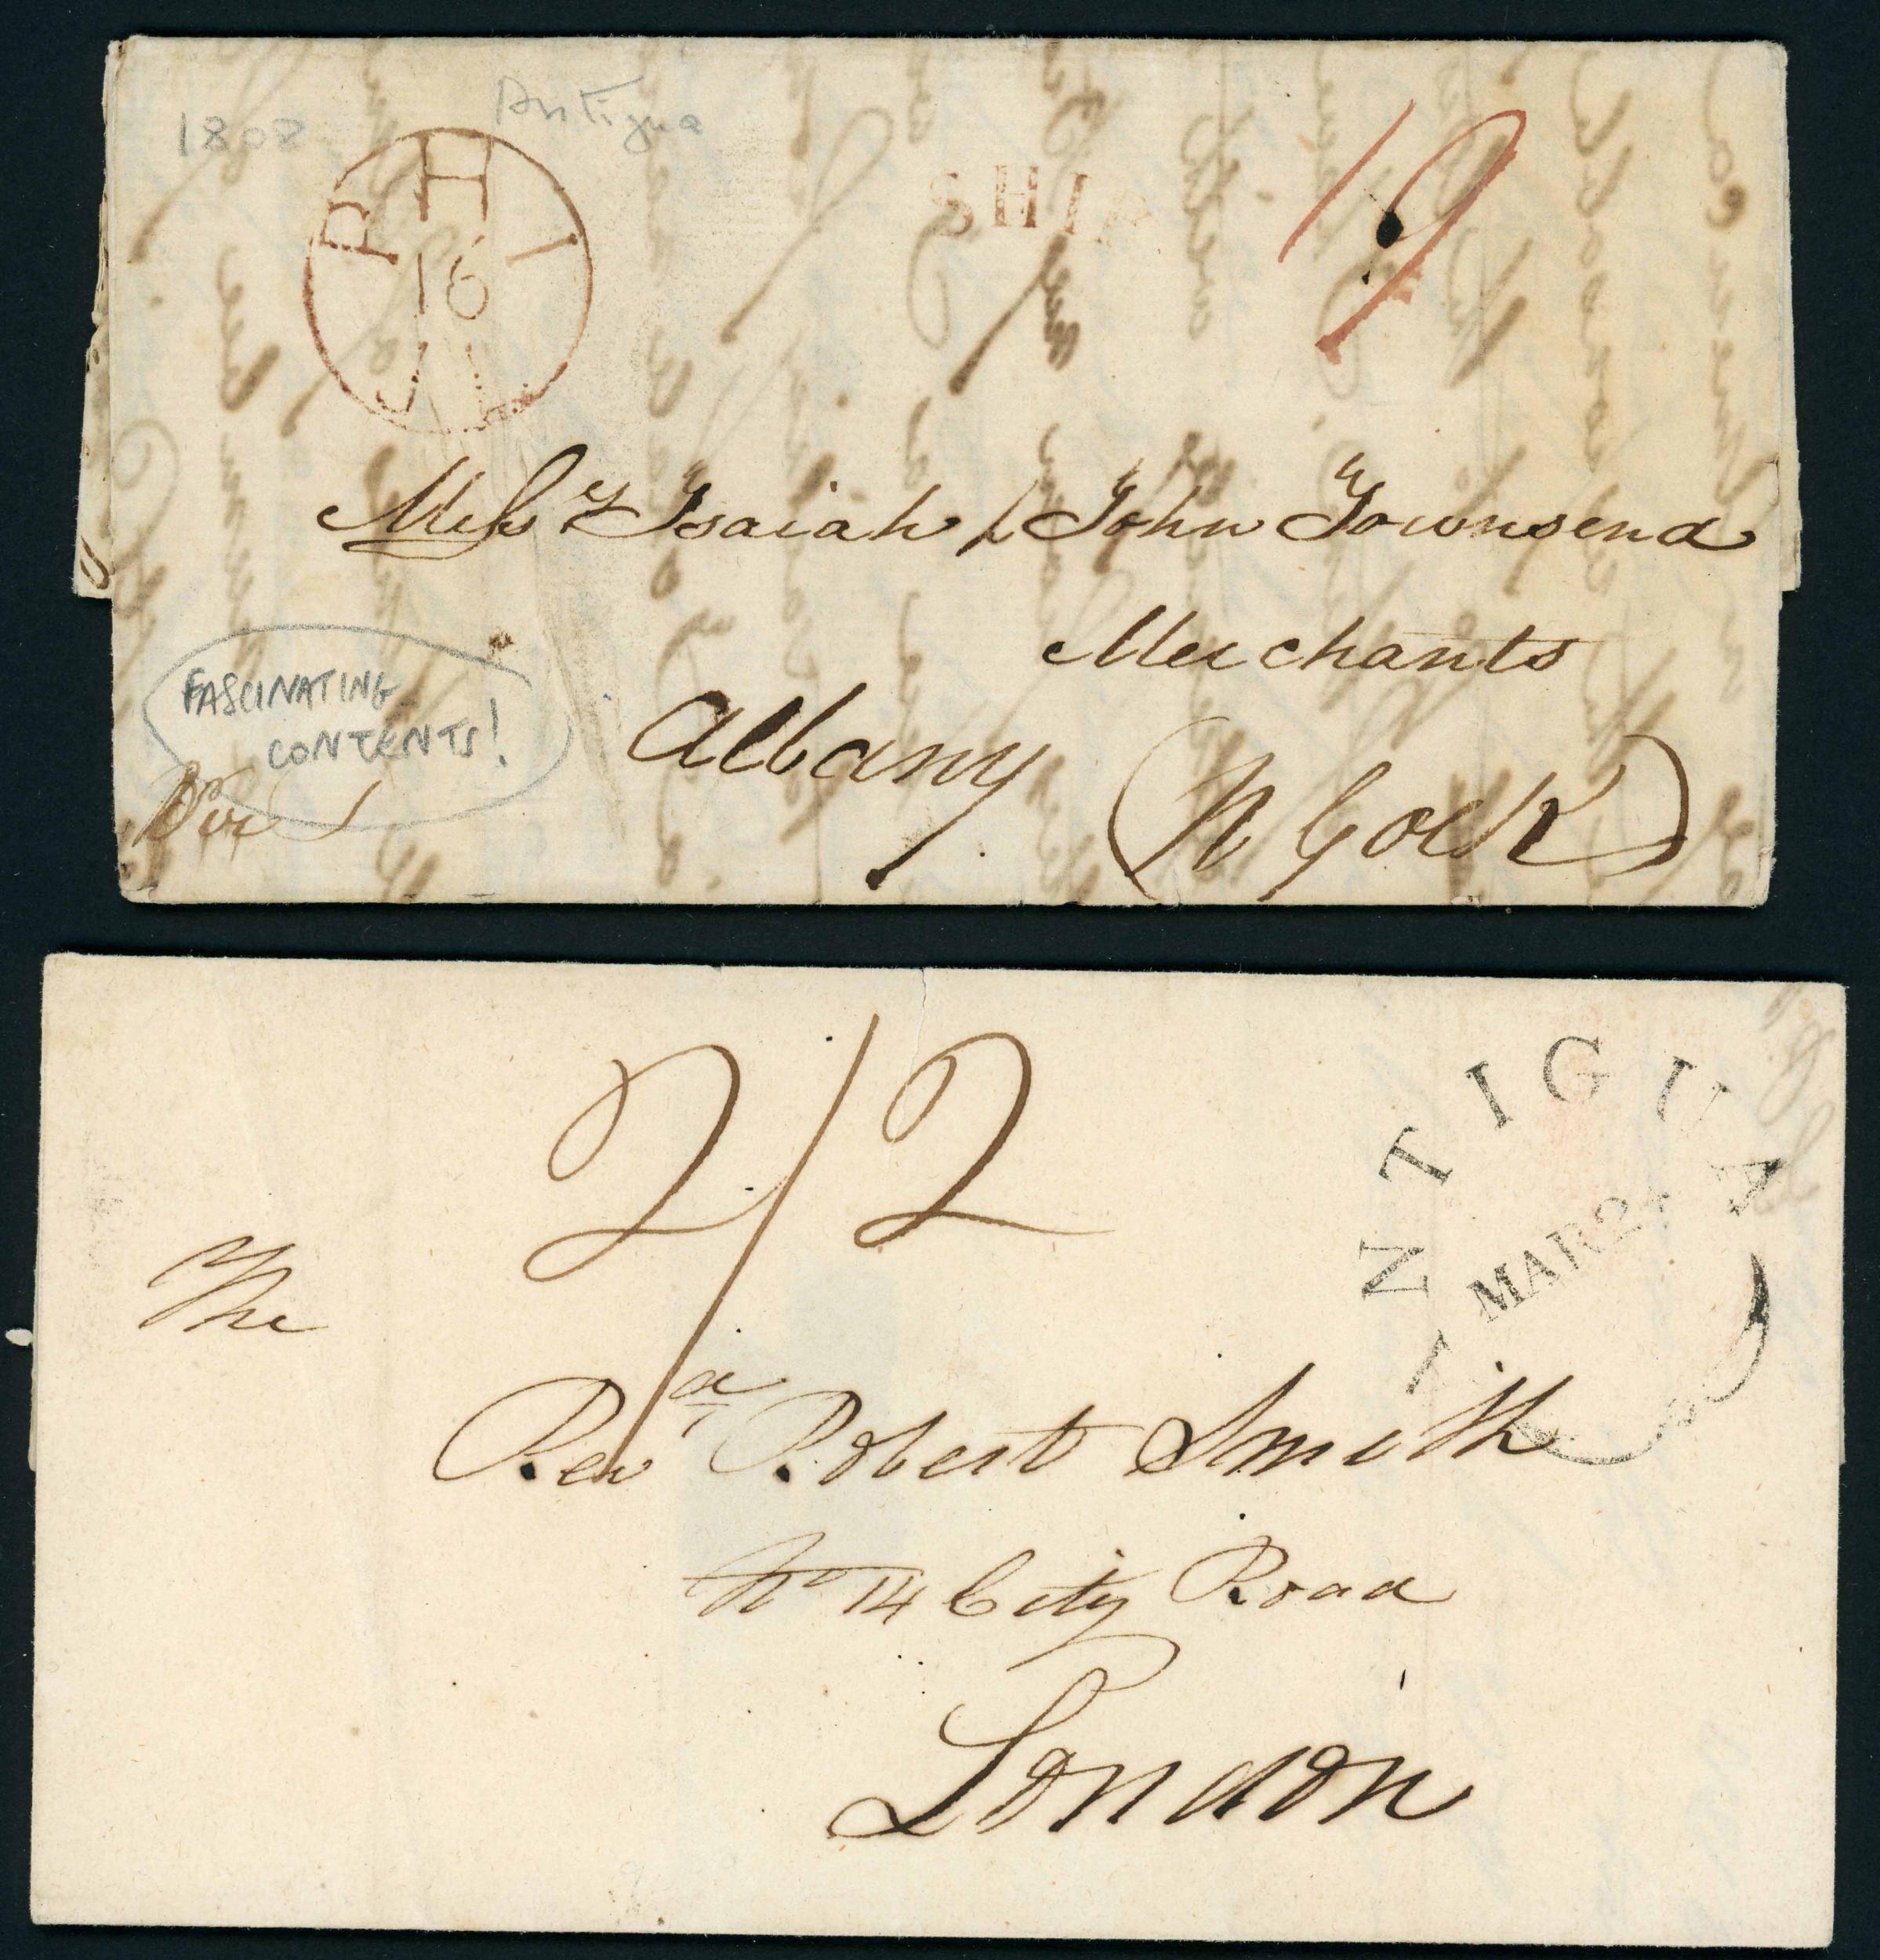 1808 Antigua
PHI
16
SHIP
19
Mess.rs Isaiah & John Townsend
Merchants
Albany (N York)
FASCINATING
CONTENTS!
2/2
ANTIGUA
MAR 24
The
Revd Robert Smith
No 14 City Road
London